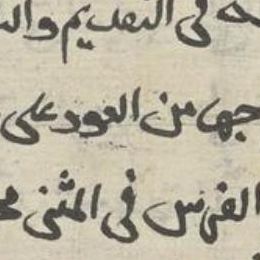 فى التقديم والت
جها من العود على
الفرس فى المثنى مح